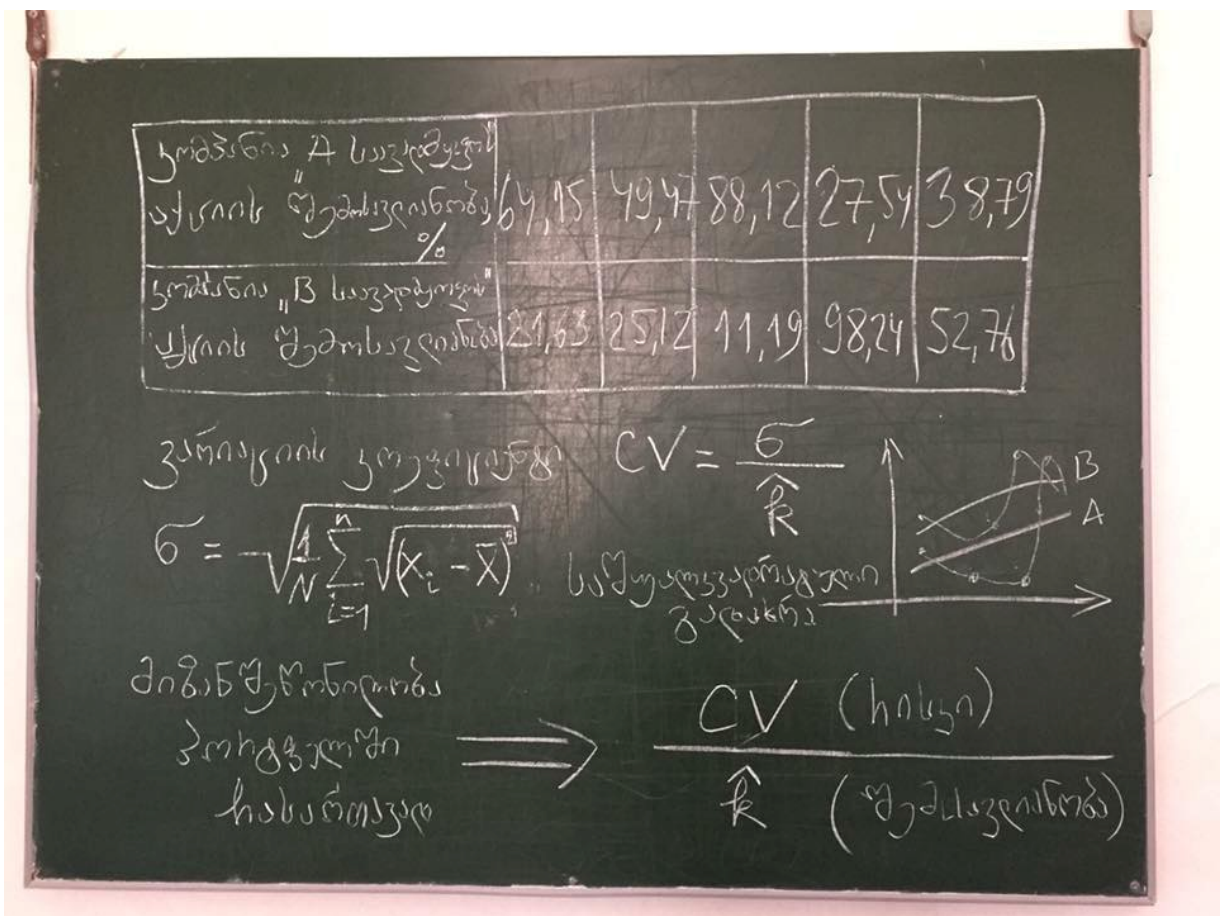 კომპანია „A საავადმყოფოს“
აქციის შემოსავლიანობა,
%
64,15 49,47 88,12 27,54 38,79
კომპანია „B საავადმყოფოს“
აქციის შემოსავლიანობა
21,63 25,12 11,19 98,24 52,76
ვარიაციის კოეფიციენტი CV = σ / k̂
B
A
σ = √(1/N ∑ᵢ₌₁ⁿ √(xᵢ − x̄)²)
საშუალკვადრატული
გადახრა
მიზანშეწონილობა
პორტფელში
ჩასართავად
⇒ CV (რისკი)
k̂ (შემოსავლიანობა)